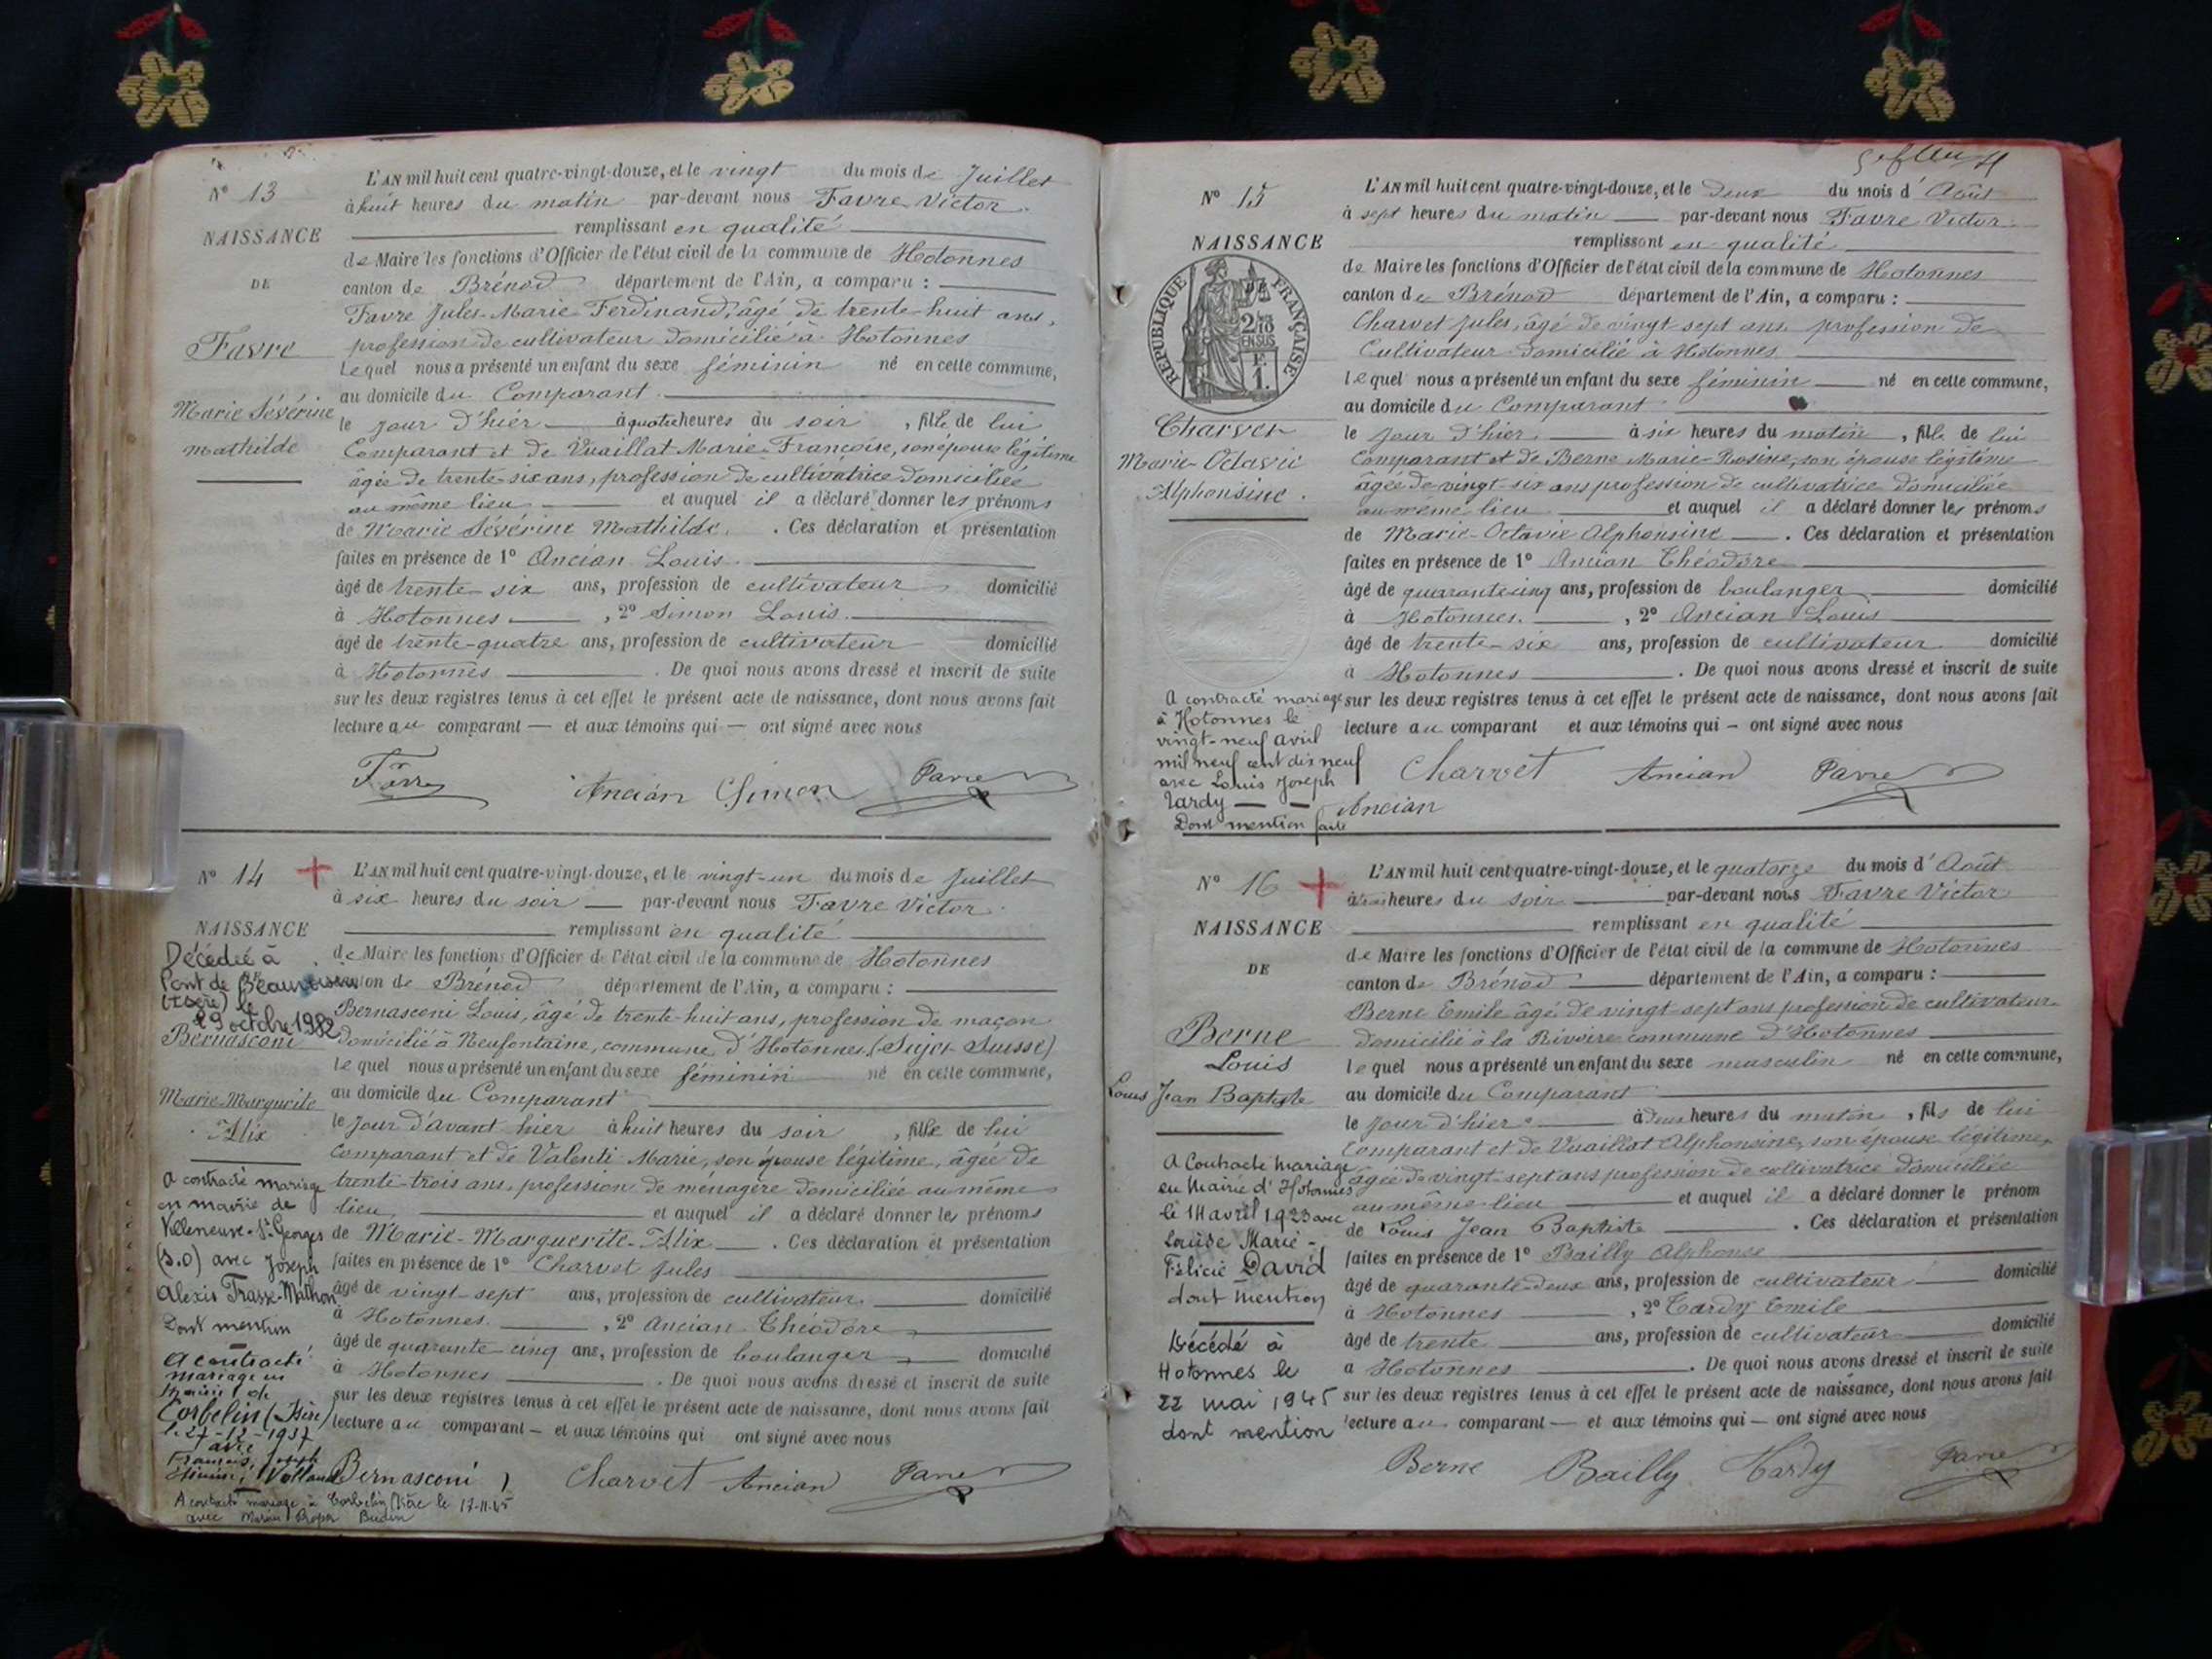 N° 13
NAISSANCE
DE
Favre
Marie Sévérine
Mathilde
L'AN mil huit cent quatre-vingt-douze, et le vingt du mois de Juillet
à huit heures du matin par-devant nous Favre Victor
remplissant en qualité
de Maire les fonctions d'Officier de l'état civil de la commune de Hotonnes
canton de Brénod département de l'Ain, a comparu :
Favre Jules-Marie Ferdinand, âgé de trente-huit ans,
profession de cultivateur domicilié à Hotonnes
Lequel nous a présenté un enfant du sexe féminin né en cette commune,
au domicile du Comparant
le jour d'hier à quatre heures du soir, fille de lui
Comparant et de Vuaillat Marie-Françoise, son épouse légitime
âgée de trente-six ans, profession de cultivatrice domiciliée
au même lieu et auquel il a déclaré donner les prénoms
de Marie Sévérine Mathilde. Ces déclaration et présentation
faites en présence de 1° Ancian Louis
âgé de trente-six ans, profession de cultivateur domicilié
à Hotonnes, 2° Simon Louis
âgé de trente-quatre ans, profession de cultivateur domicilié
à Hotonnes. De quoi nous avons dressé et inscrit de suite
sur les deux registres tenus à cet effet le présent acte de naissance, dont nous avons fait
lecture au comparant — et aux témoins qui — ont signé avec nous
Ancian Simon Favre
N° 14
NAISSANCE
Décédée à
Pont de Beauvoisin
(Isère) le
29 octobre 1982
Bernasconi
Marie-Marguerite
Alix
A contracté mariage
en mairie de
Villeneuve-St-Georges
(S.O) avec Joseph
Alexis Trasse-Mathon
Dont mention
A contracté
mariage en
Mairie de
Corbelin (Isère)
le 27-12-1937
avec
François, Joseph
A contracté mariage à Corbelin Isère le 17-11-45
avec
L'AN mil huit cent quatre-vingt-douze, et le vingt-un du mois de Juillet
à six heures du soir — par-devant nous Favre Victor
remplissant en qualité
de Maire les fonctions d'Officier de l'état civil de la commune de Hotonnes
canton de Brénod département de l'Ain, a comparu :
Bernasconi Louis, âgé de trente-huit ans, profession de maçon
domicilié à Neufontaine, commune d'Hotonnes (Sujet Suisse)
lequel nous a présenté un enfant du sexe féminin né en cette commune,
au domicile du Comparant
le jour d'avant hier à huit heures du soir, fille de lui
comparant et de Valenti Marie, son épouse légitime, âgée de
trente-trois ans, profession de ménagère domiciliée au même
lieu, et auquel il a déclaré donner les prénoms
de Marie-Marguerite-Alix. Ces déclaration et présentation
faites en présence de 1° Charvet Jules
âgé de vingt-sept ans, profession de cultivateur domicilié
à Hotonnes, 2° Ancian Théodore
âgé de quarante cinq ans, profession de boulanger domicilié
à Hotonnes. De quoi nous avons dressé et inscrit de suite
sur les deux registres tenus à cet effet le présent acte de naissance, dont nous avons fait
lecture au comparant — et aux témoins qui ont signé avec nous
Bernasconi Charvet Ancian Favre
N° 15
NAISSANCE
DE
REPUBLIQUE FRANÇAISE
2/10 EN SUS
Charvet
Marie-Octavie
Alphonsine.
A contracté mariage
à Hotonnes le
vingt-neuf avril
mil neuf cent dix neuf
avec Louis Joseph
Tardy
Dont mention faite
L'AN mil huit cent quatre-vingt-douze, et le deux du mois d'Août
à sept heures du matin — par-devant nous Favre Victor
remplissant en qualité
de Maire les fonctions d'Officier de l'état civil de la commune de Hotonnes
canton de Brénod département de l'Ain, a comparu :
Charvet Jules, âgé de vingt sept ans profession de
Cultivateur domicilié à Hotonnes
lequel nous a présenté un enfant du sexe féminin né en cette commune,
au domicile du Comparant
le jour d'hier à six heures du matin, fille de lui
Comparant et de Berne Marie-Rosine, son épouse légitime
âgée de vingt-six ans profession de cultivatrice domiciliée
au même lieu et auquel il a déclaré donner les prénoms
de Marie-Octavie Alphonsine. Ces déclaration et présentation
faites en présence de 1° Ancian Théodore
âgé de quarante cinq ans, profession de boulanger domicilié
à Hotonnes, 2° Ancian Louis
âgé de trente-six ans, profession de cultivateur domicilié
à Hotonnes. De quoi nous avons dressé et inscrit de suite
sur les deux registres tenus à cet effet le présent acte de naissance, dont nous avons fait
lecture au comparant et aux témoins qui — ont signé avec nous
Charvet Ancian Favre
Ancian
N° 16
NAISSANCE
DE
Berne
Louis
Louis Jean Baptiste
A Contracté mariage
en Mairie d'Hotonnes
le 14 avril 1923 avec
Louise Marie-
Félicie David
dont mention
Décédé à
Hotonnes le
22 mai 1945
dont mention
L'AN mil huit cent quatre-vingt-douze, et le quatorze du mois d'Août
à heures du soir par-devant nous Favre Victor
remplissant en qualité
de Maire les fonctions d'Officier de l'état civil de la commune de Hotonnes
canton de Brénod département de l'Ain, a comparu :
Berne Emile âgé de vingt sept ans profession de cultivateur
domicilié à la Rivoire commune d'Hotonnes
lequel nous a présenté un enfant du sexe masculin né en cette commune,
au domicile du Comparant
le jour d'hier à deux heures du matin, fils de lui
Comparant et de Vuaillat Alphonsine, son épouse légitime,
âgée de vingt-sept ans profession de cultivatrice domiciliée
au même lieu et auquel il a déclaré donner le prénom
de Louis Jean Baptiste. Ces déclaration et présentation
faites en présence de 1° Bailly Alphonse
âgé de quarante-deux ans, profession de cultivateur domicilié
à Hotonnes, 2° Tardy Emile
âgé de trente ans, profession de cultivateur domicilié
à Hotonnes. De quoi nous avons dressé et inscrit de suite
sur les deux registres tenus à cet effet le présent acte de naissance, dont nous avons fait
lecture au comparant — et aux témoins qui — ont signé avec nous
Berne Bailly Tardy Favre